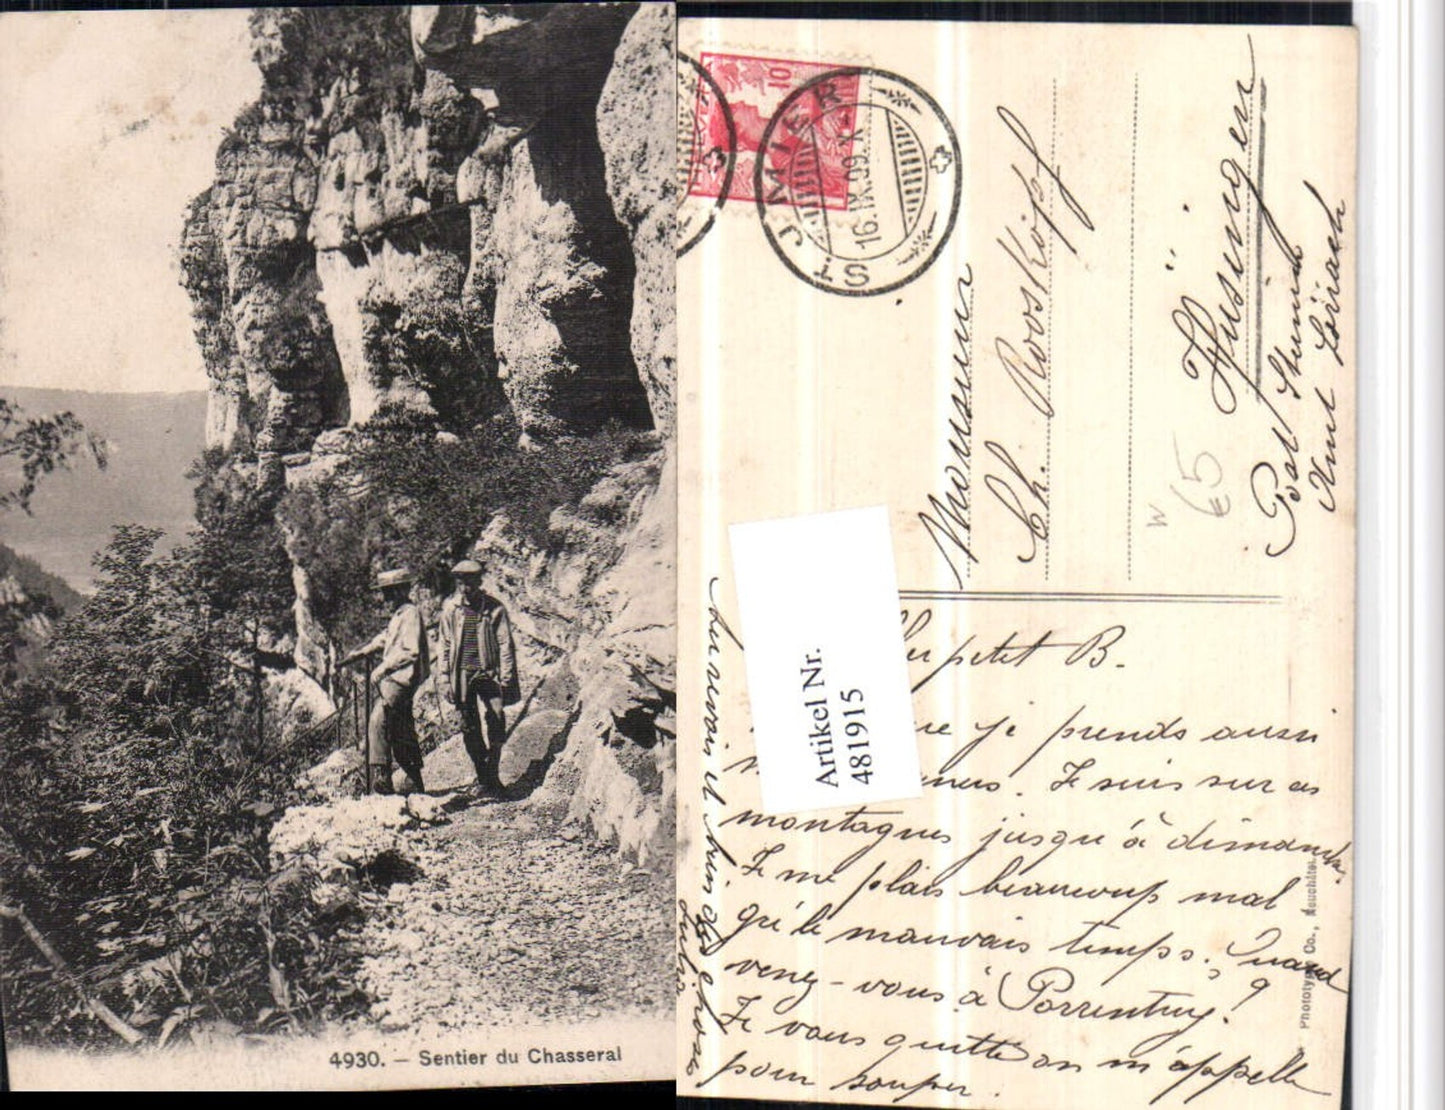 4930. — Sentier du Chasseral
10
ST IMIER
16.IX.09.X
Monsieur
Ch. Rooskopf
Hüsingen
Post Steinen
Amt Lörrach
W
65
Artikel Nr.
481915
petit B.
je prends aussi
. Je suis sur ces
montagnes jusqu'à dimanche.
Je me plais beaucoup mal
gré le mauvais temps. Quand
venez-vous à Porrentruy?
Je vous quitte on m'appelle
pour souper.
Au revoir et bien des choses
Phototypie Co., Neuchâtel.